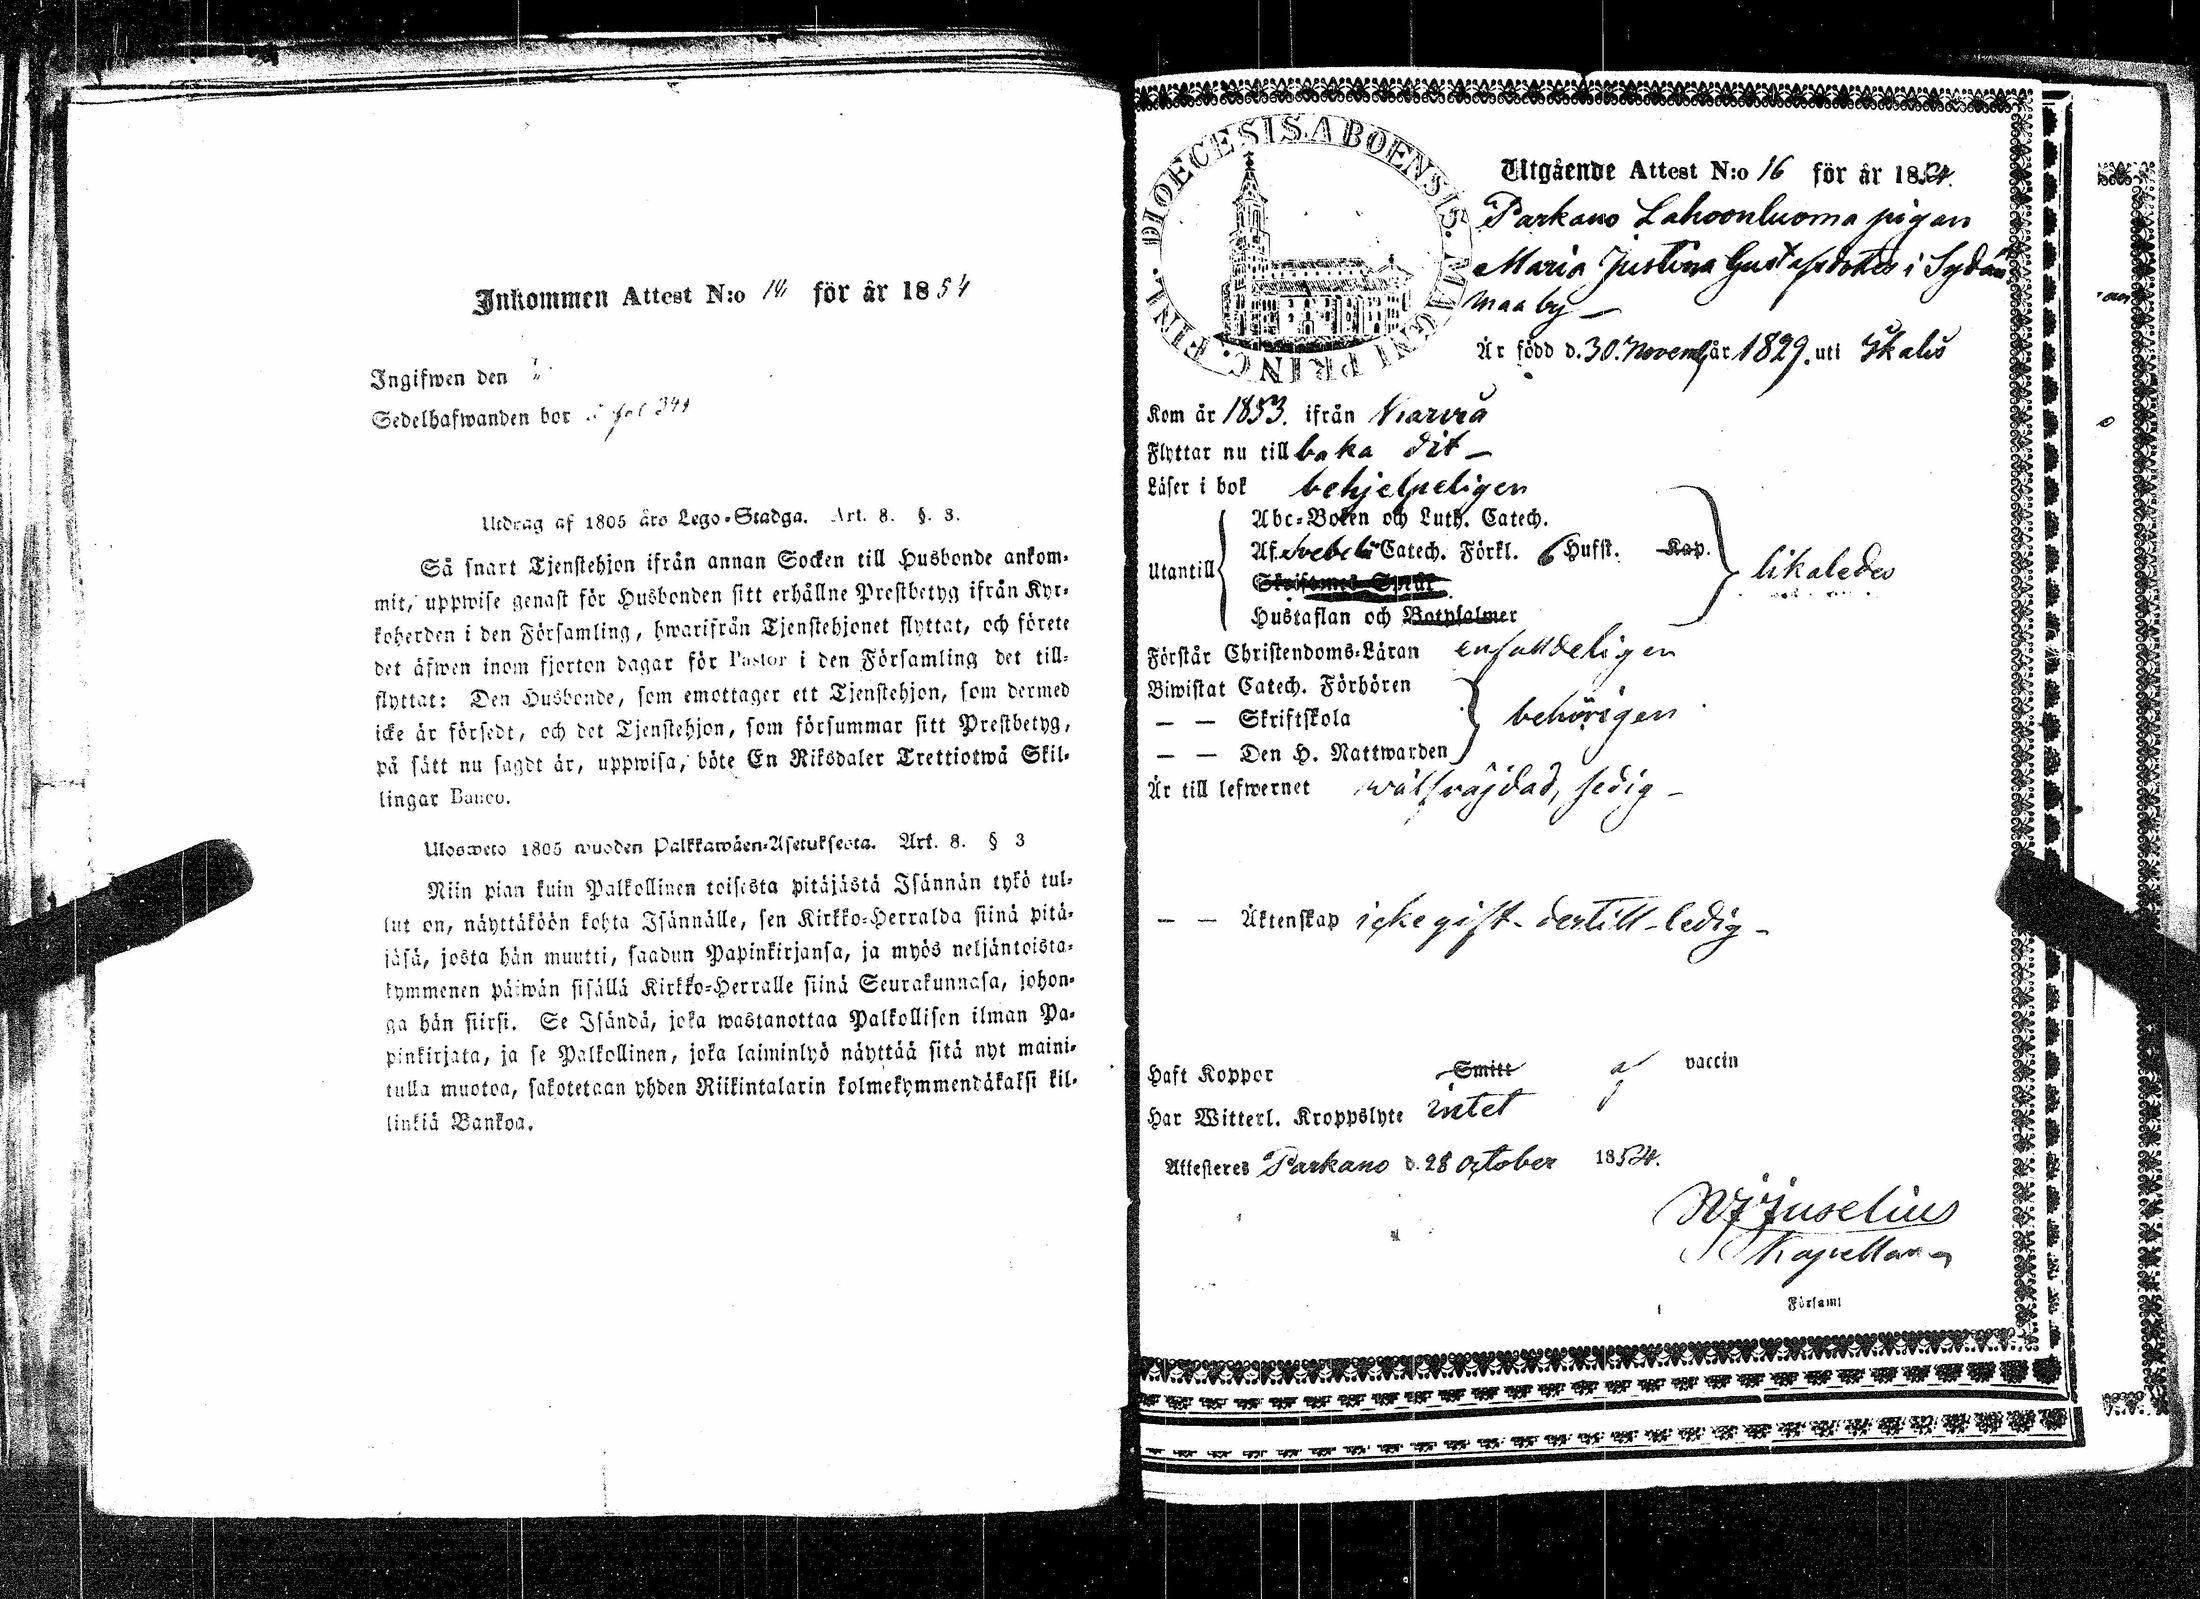 Inkommen Attest N:o 14 för år 1854
Ingifwen den
Sedelhafwanden bor fol 341
Utdrag af 1805 års Lego-Stadga. Art. 8. §. 3.
Så snart Tjenstehjon ifrån annan Socken till Husbonde ankom-
mit, uppwise genast för Husbonden sitt erhållne Prestbetyg ifrån Kyr-
koherden i den Församling, hwarifrån Tjenstehjonet flyttat, och förete
det äfwen inom fjorton dagar för Pastor i den Församling det till-
flyttat: Den Husbonde, som emottager ett Tjenstehjon, som dermed
icke är försedt, och det Tjenstehjon, som försummar sitt Prestbetyg,
på sätt nu sagdt är, uppwisa, böte En Riksdaler Trettiotwå Skil-
lingar Banco.
Ulosweto 1805 wuoden Palkkawäen-Asetuksesta. Art. 8. § 3
Niin pian kuin Palkollinen toisesta pitäjästä Isännän tykö tul-
lut on, näyttäköön kohta Isännälle, sen Kirkko-Herralda siinä pitä-
jäsä, josta hän muutti, saadun Papinkirjansa, ja myös neljäntoista-
kymmenen päiwän sisällä Kirkko-Herralle siinä Seurakunnasa, johon-
ga hän siirsi. Se Isändä, joka wastanottaa Palkollisen ilman Pa-
pinkirjata, ja se Palkollinen, joka laiminlyö näyttää sitä nyt maini-
tulla muotoa, sakotetaan yhden Riikintalarin kolmekymmendäkaksi kil-
linkiä Bankoa.
DIOECESIS ABOENSIS. MAGNI PRINC. FINL.
Utgående Attest N:o 16 för år 1854.
Parkano Lahoonluoma pigan
Maria Justina Gustafsdotter i Sydän
maa by
Är född d. 30. Novemb år 1829. uti Ikalis
Kom år 1853. ifrån Karvia
Flyttar nu till baka dit
Läser i bok behjelpeligen
Abc-Boken och Luth. Catech.
Utantill Af Svebeli Catech. Förkl. 6 Hufst. Kap. likaledes
Skriftenes Språk
Hustaflan och Botpsalmer
Förstår Christendoms-Läran enfaldeligen
Biwistat Catech. Förhören
— — Skriftskola behörigen
— — Den H. Nattwarden
Är till lefwernet wälfräjdad, sedig
— — Äktenskap icke gift - dertill - ledig
Haft Koppor Smitt af vaccin
Har Witterl. Kroppslyte intet
Attesteres Parkano d. 28 October 1854.
Juselius
Kapellan
Församl